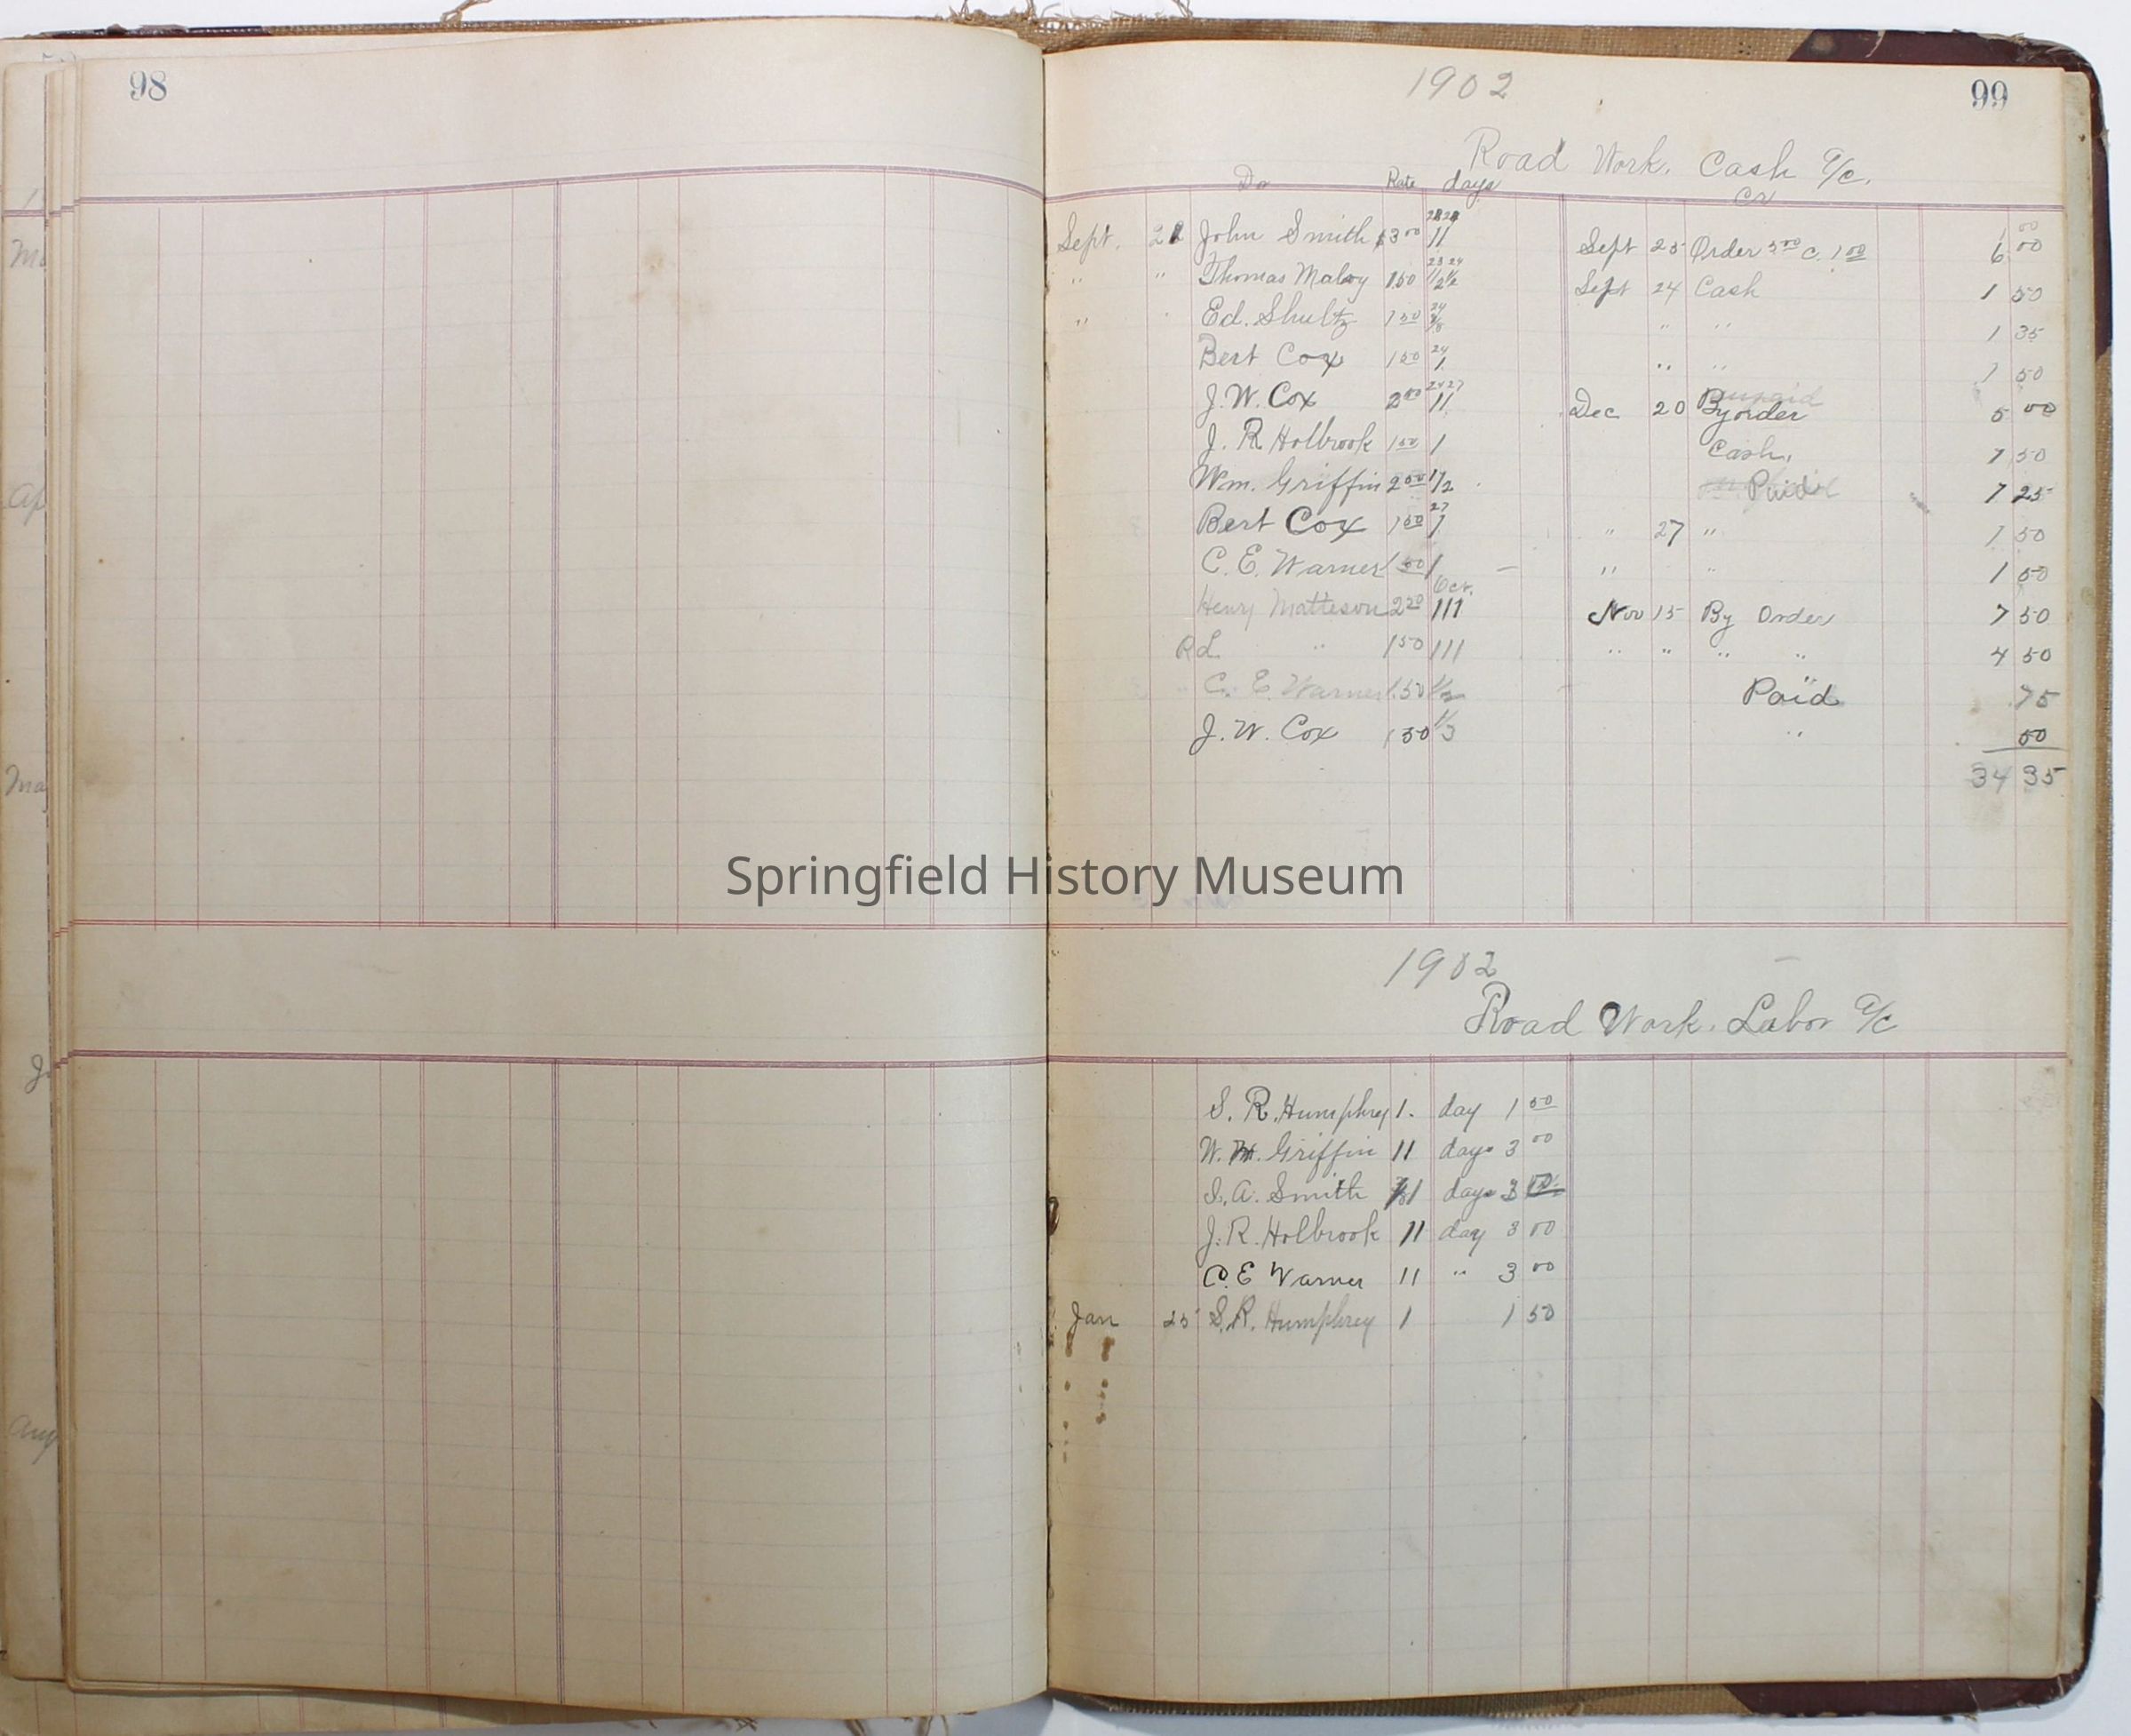 98
99
1902
Road Work. Cash a/c.
Dr Rate days Cr
23 24
Sept. John Smith $3 00 11 Sept 25 Order 5 00 c. 1 00 6 00
23 24
" " Thomas Maloy 1 50 1/2 1/2 Sept 24 Cash 1 50
24
" Ed. Shultz 1 50 " " 1 35
24
Bert Cox 1 50 1 " " 1 50
24 27
J. W. Cox 2 50 11 Dec 20 By order 5 00
J. R. Holbrook 1 50 1 Cash. 1 50
Wm. Griffin 2 50 1/2 Paid 1 25
27
Bert Cox 1 50 1 " 27 " 1 50
C. E. Warner 1 50 1 " " 1 50
Oct.
Henry Matteson 2 50 111 Nov 15 By Order 7 50
R L " 1 50 111 " " " " 4 50
C. E. Warner 1.50 1/2 Paid 75
J. W. Cox 1 50 1/3 " 50
34 35
Springfield History Museum
1902
Road Work. Labor a/c
S. R. Humphrey 1. day 1 50
W. M. Griffin 11 days 3 00
S. A. Smith days 3 00
J. R. Holbrook 11 day 3 00
C. E Warner 11 " 3 00
Jan 25 S. R. Humphrey 1 1 50
Ma
Ap
Ma
J
Aug